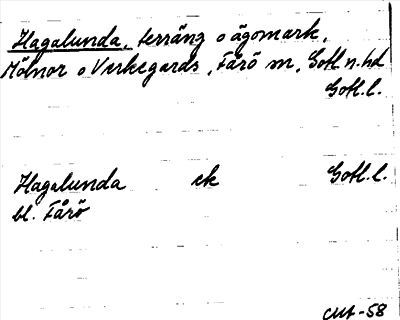 Hagalunda, terräng o ägomark,
Mölnor o Verkegards, Fårö sn, Gotl. n. hd
Gotl. l.
Hagalunda ek Gotl. l.
bl. Fårö
CMA-58